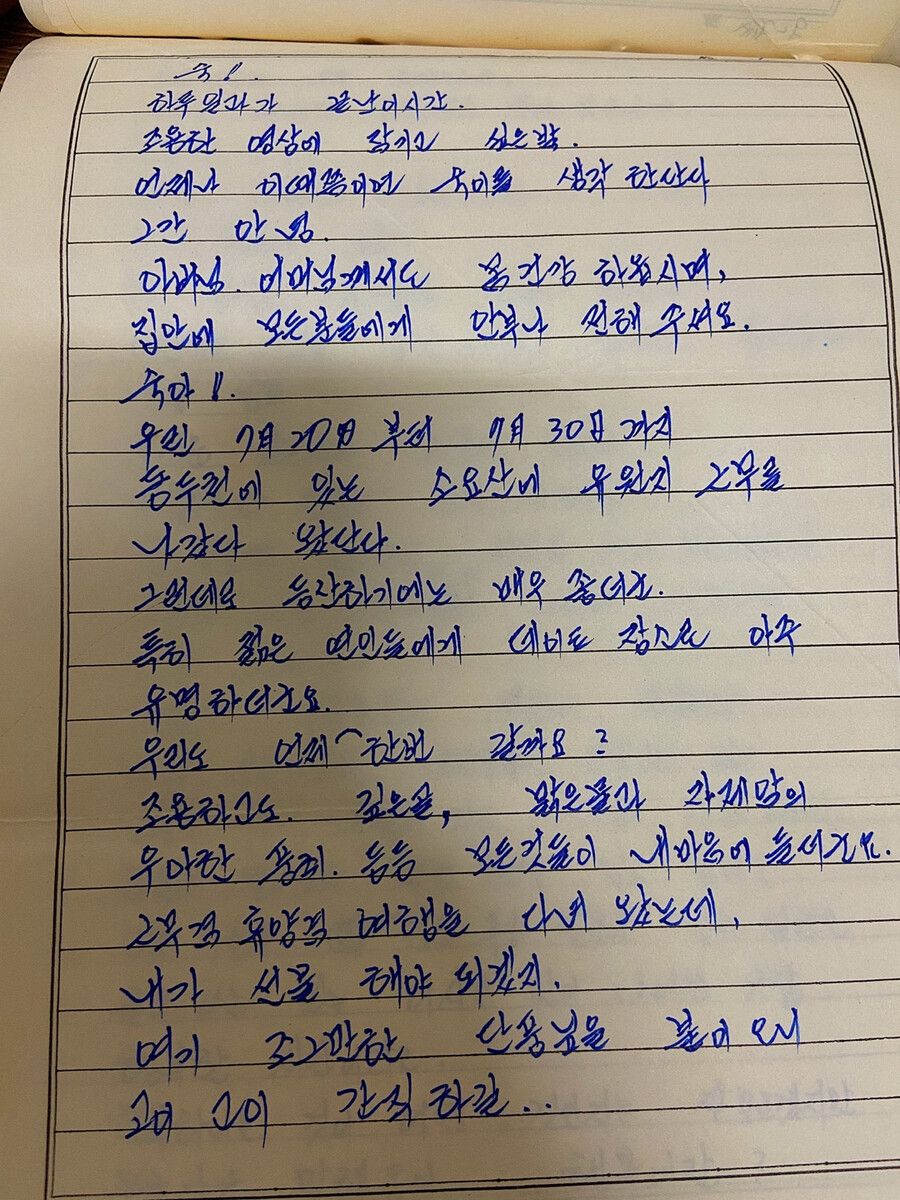 숙!!.
하루 일과가 끝난 이시간.
조용한 명상에 잠기고 싶은 밤.
언제나 이때쯤이면 숙이를 생각 한산다
그간 안녕.
아버님. 어머님께서도 몸 건강 하옵시며,
집안에 모든분들에게 안부나 전해 주셔요.
숙아!!.
우린 7月 20日 부터 7月 30日 까지
동두천에 있는 소요산에 유원지 근무를
나갔다 왔산다.
그런데로 등산하기에는 매우 좋더군.
특히 젊은 연인들에게 데이트 장소로 아주
유명하더군요.
우리도 언제 한번 갈까요?
조용하고도. 깊은골, 맑은물과 자제막의
우아한 풍치. 등등 모든것들이 내마음에 들더군요.
근무겸 휴양겸 여행을 다녀 왔는데,
내가 선물 해야 되겠지.
여기 조그만한 단풍닢을 붙이 오니
고이 고이 간직하길...